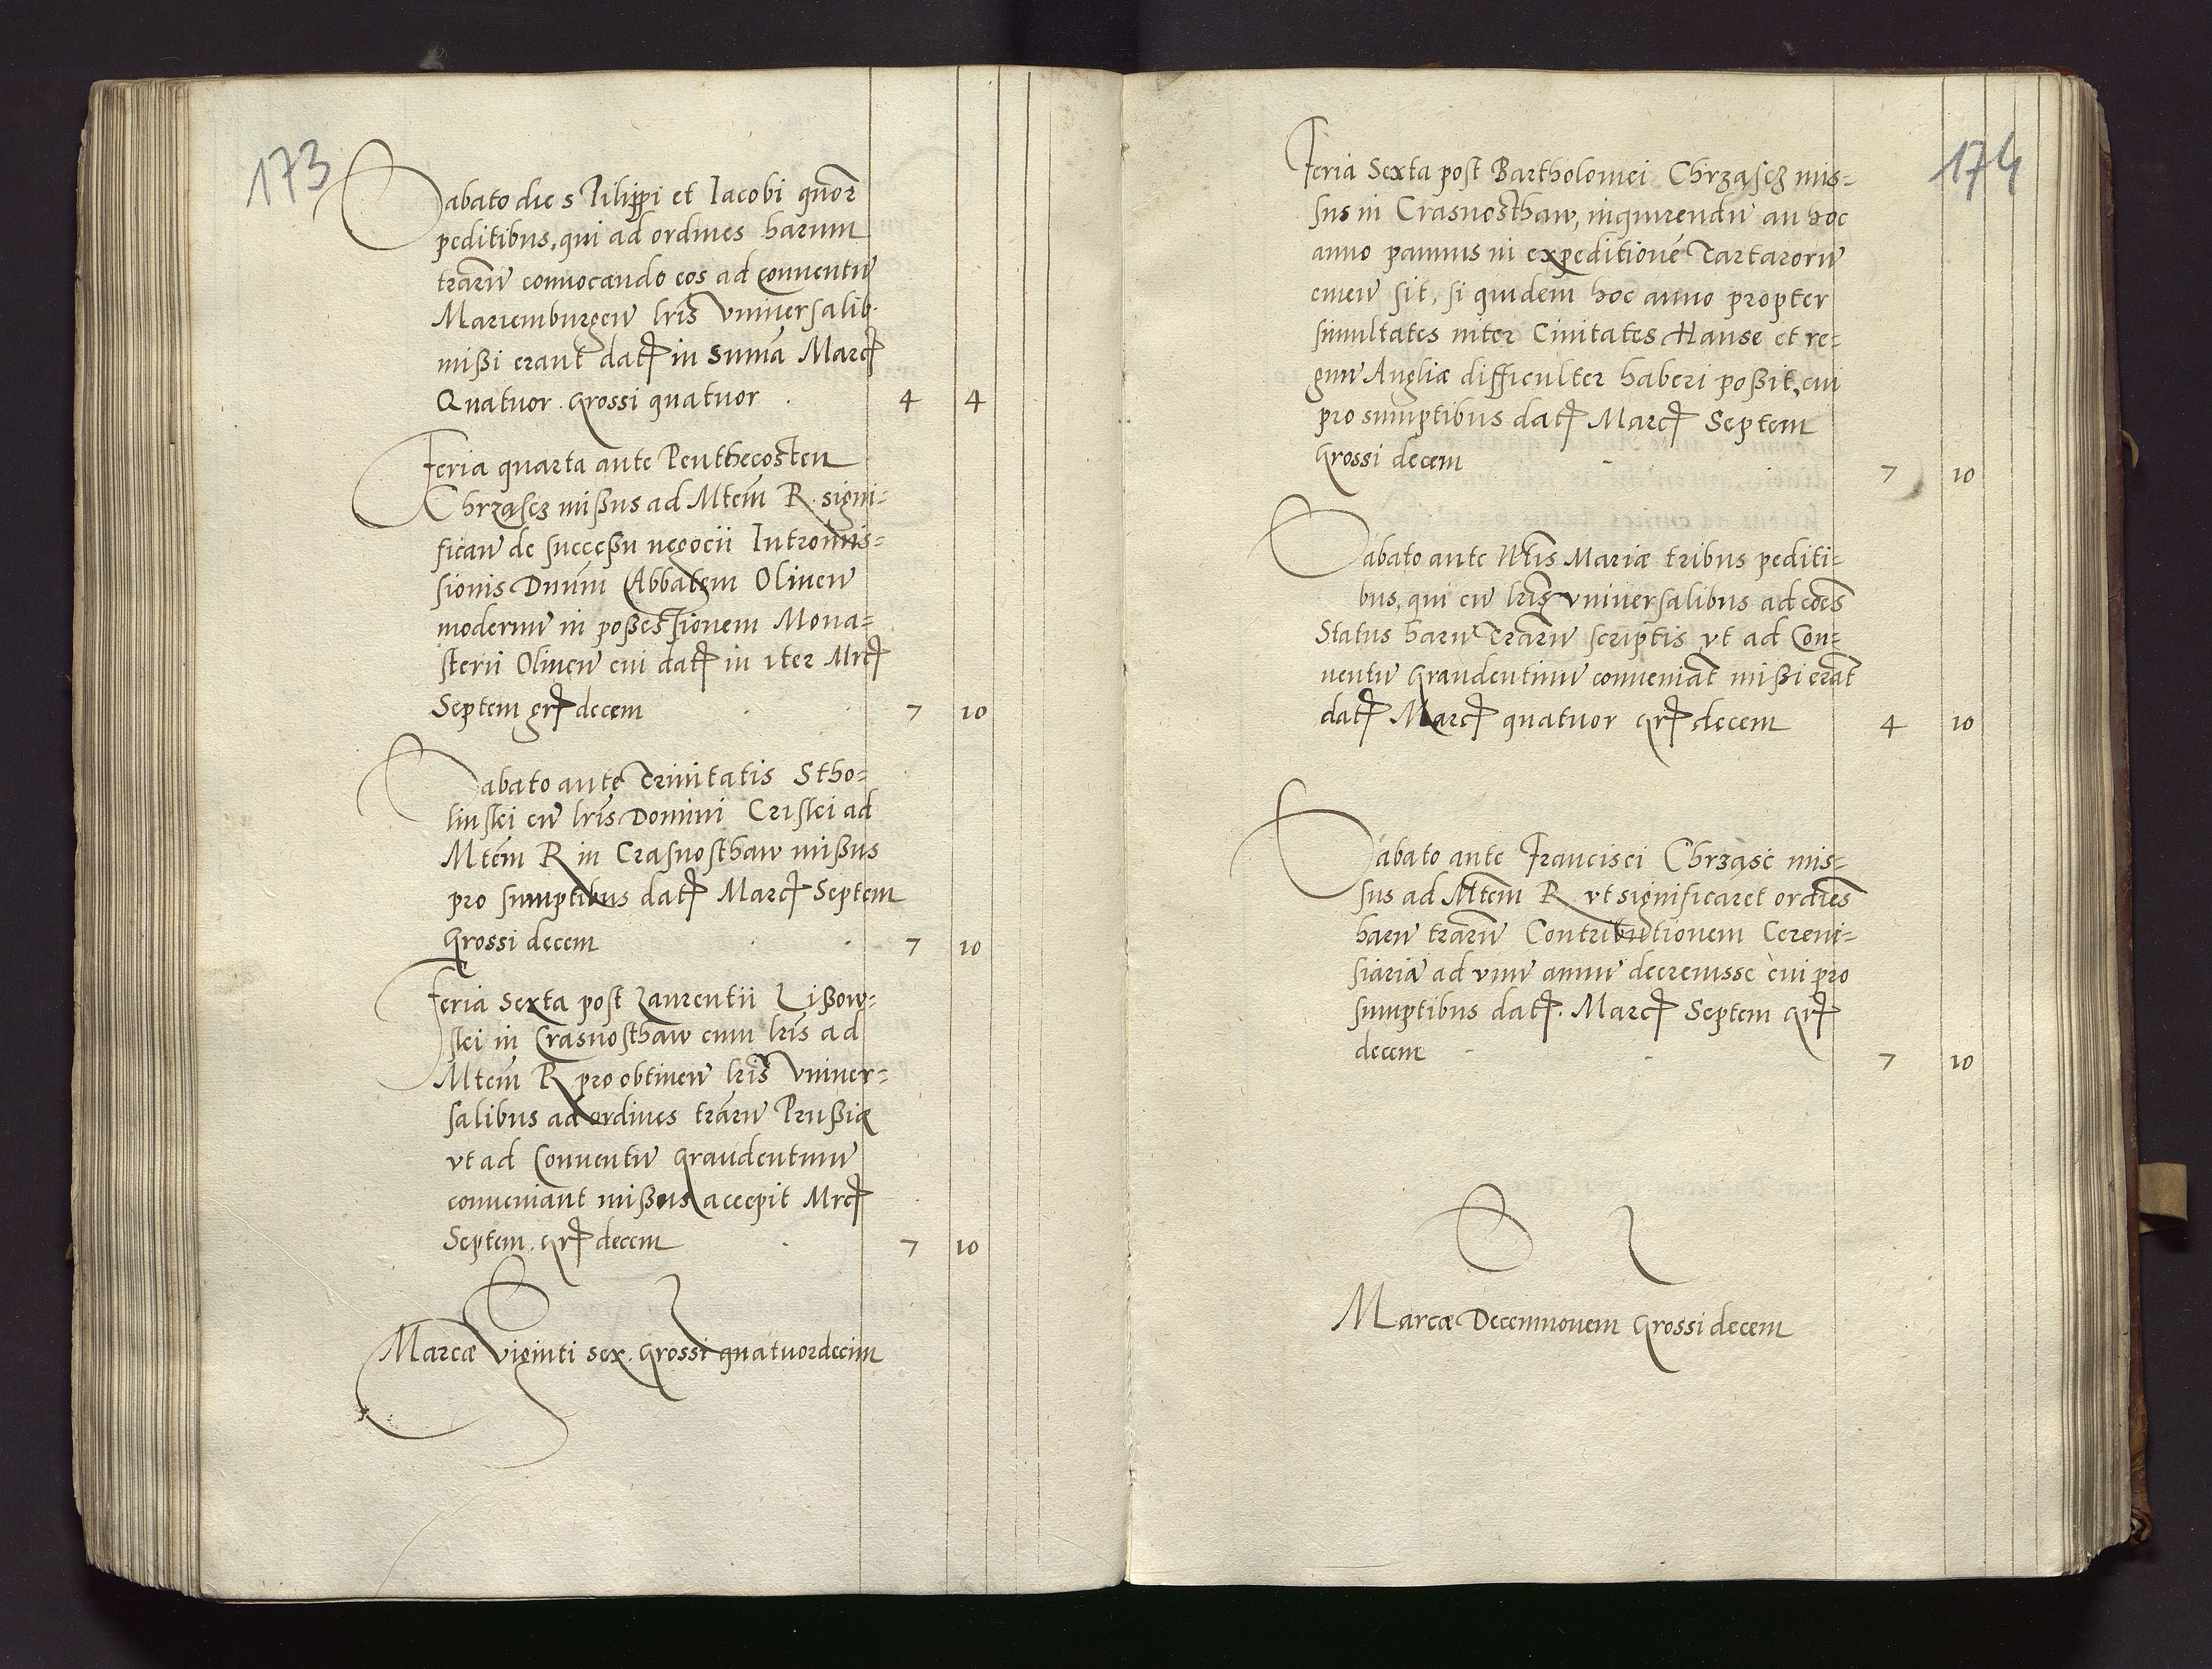 173
Sabato die s Pilippi et Iacobi quor
peditibus, qui ad ordines harum
trarū convocando eos ad conventū
Marienburgeñ lris Vniversalib.
mißi erant dat in suma Marc
Quatuor. Grossi quatuor 4 4
Feria quarta ante Penthecosten
Chrząscz mißus ad Mtem R. signi=
ficañ de succeßu negocii Intromis=
sionis Dnum Abbatem Oliveñ
modernū in poßessionem Mona=
sterii Oliveñ cui dat in iter Mrc
Septem gr decem 7 10
Sabato ante Trinitatis Stho=
linskei cū lris Domini Criskei ad
Mtem R in Crasnosthaw mißus
pro sumptibus dat Marc Septem
Grossi decem 7 10
Feria Sexta post Laurentii Lißow=
skei in Crasnosthaw cum lris ad
Mtem R pro obtineñ lris Vniver=
salibus ad ordines trarū Prußię
vt ad Conventū Graudentinū
conveniant mißus accepit Mrc
Septem. gr decem 7 10
Marcæ Viginti sex. Grossi quatuordecim
174
Feria Sexta post Bartholomei Chrząscz mis=
sus in Crasnosthaw, inquirendū an hoc
anno pannus in expeditionē Tartarorū
emeñ sit, si quidem hoc anno propter
simultates inter Civitates Hanse et re=
gnū Angliæ difficulter haberi poßit, cui
pro sumptibus dat Marc Septem
Grossi decem 7 10
Sabato ante Ntis Mariæ tribus pediti=
bus, qui cū lris vniversalibus ad oēs
Status harū Trarū scriptis vt ad Con=
ventū Graudentinū conveniāt mißi erāt
dat Marc quatuor gr decem 4 10
Sabato ante Francisci Chrząsc mis=
sus ad Mtem R. vt significaret ordiēs
harū trarū Contributionem Cerevi=
siariā ad vnū annū decrevisse cui pro
sumptibus dat. Marc Septem gr
decem 7 10
Marcæ Decemnovem Grossi decem